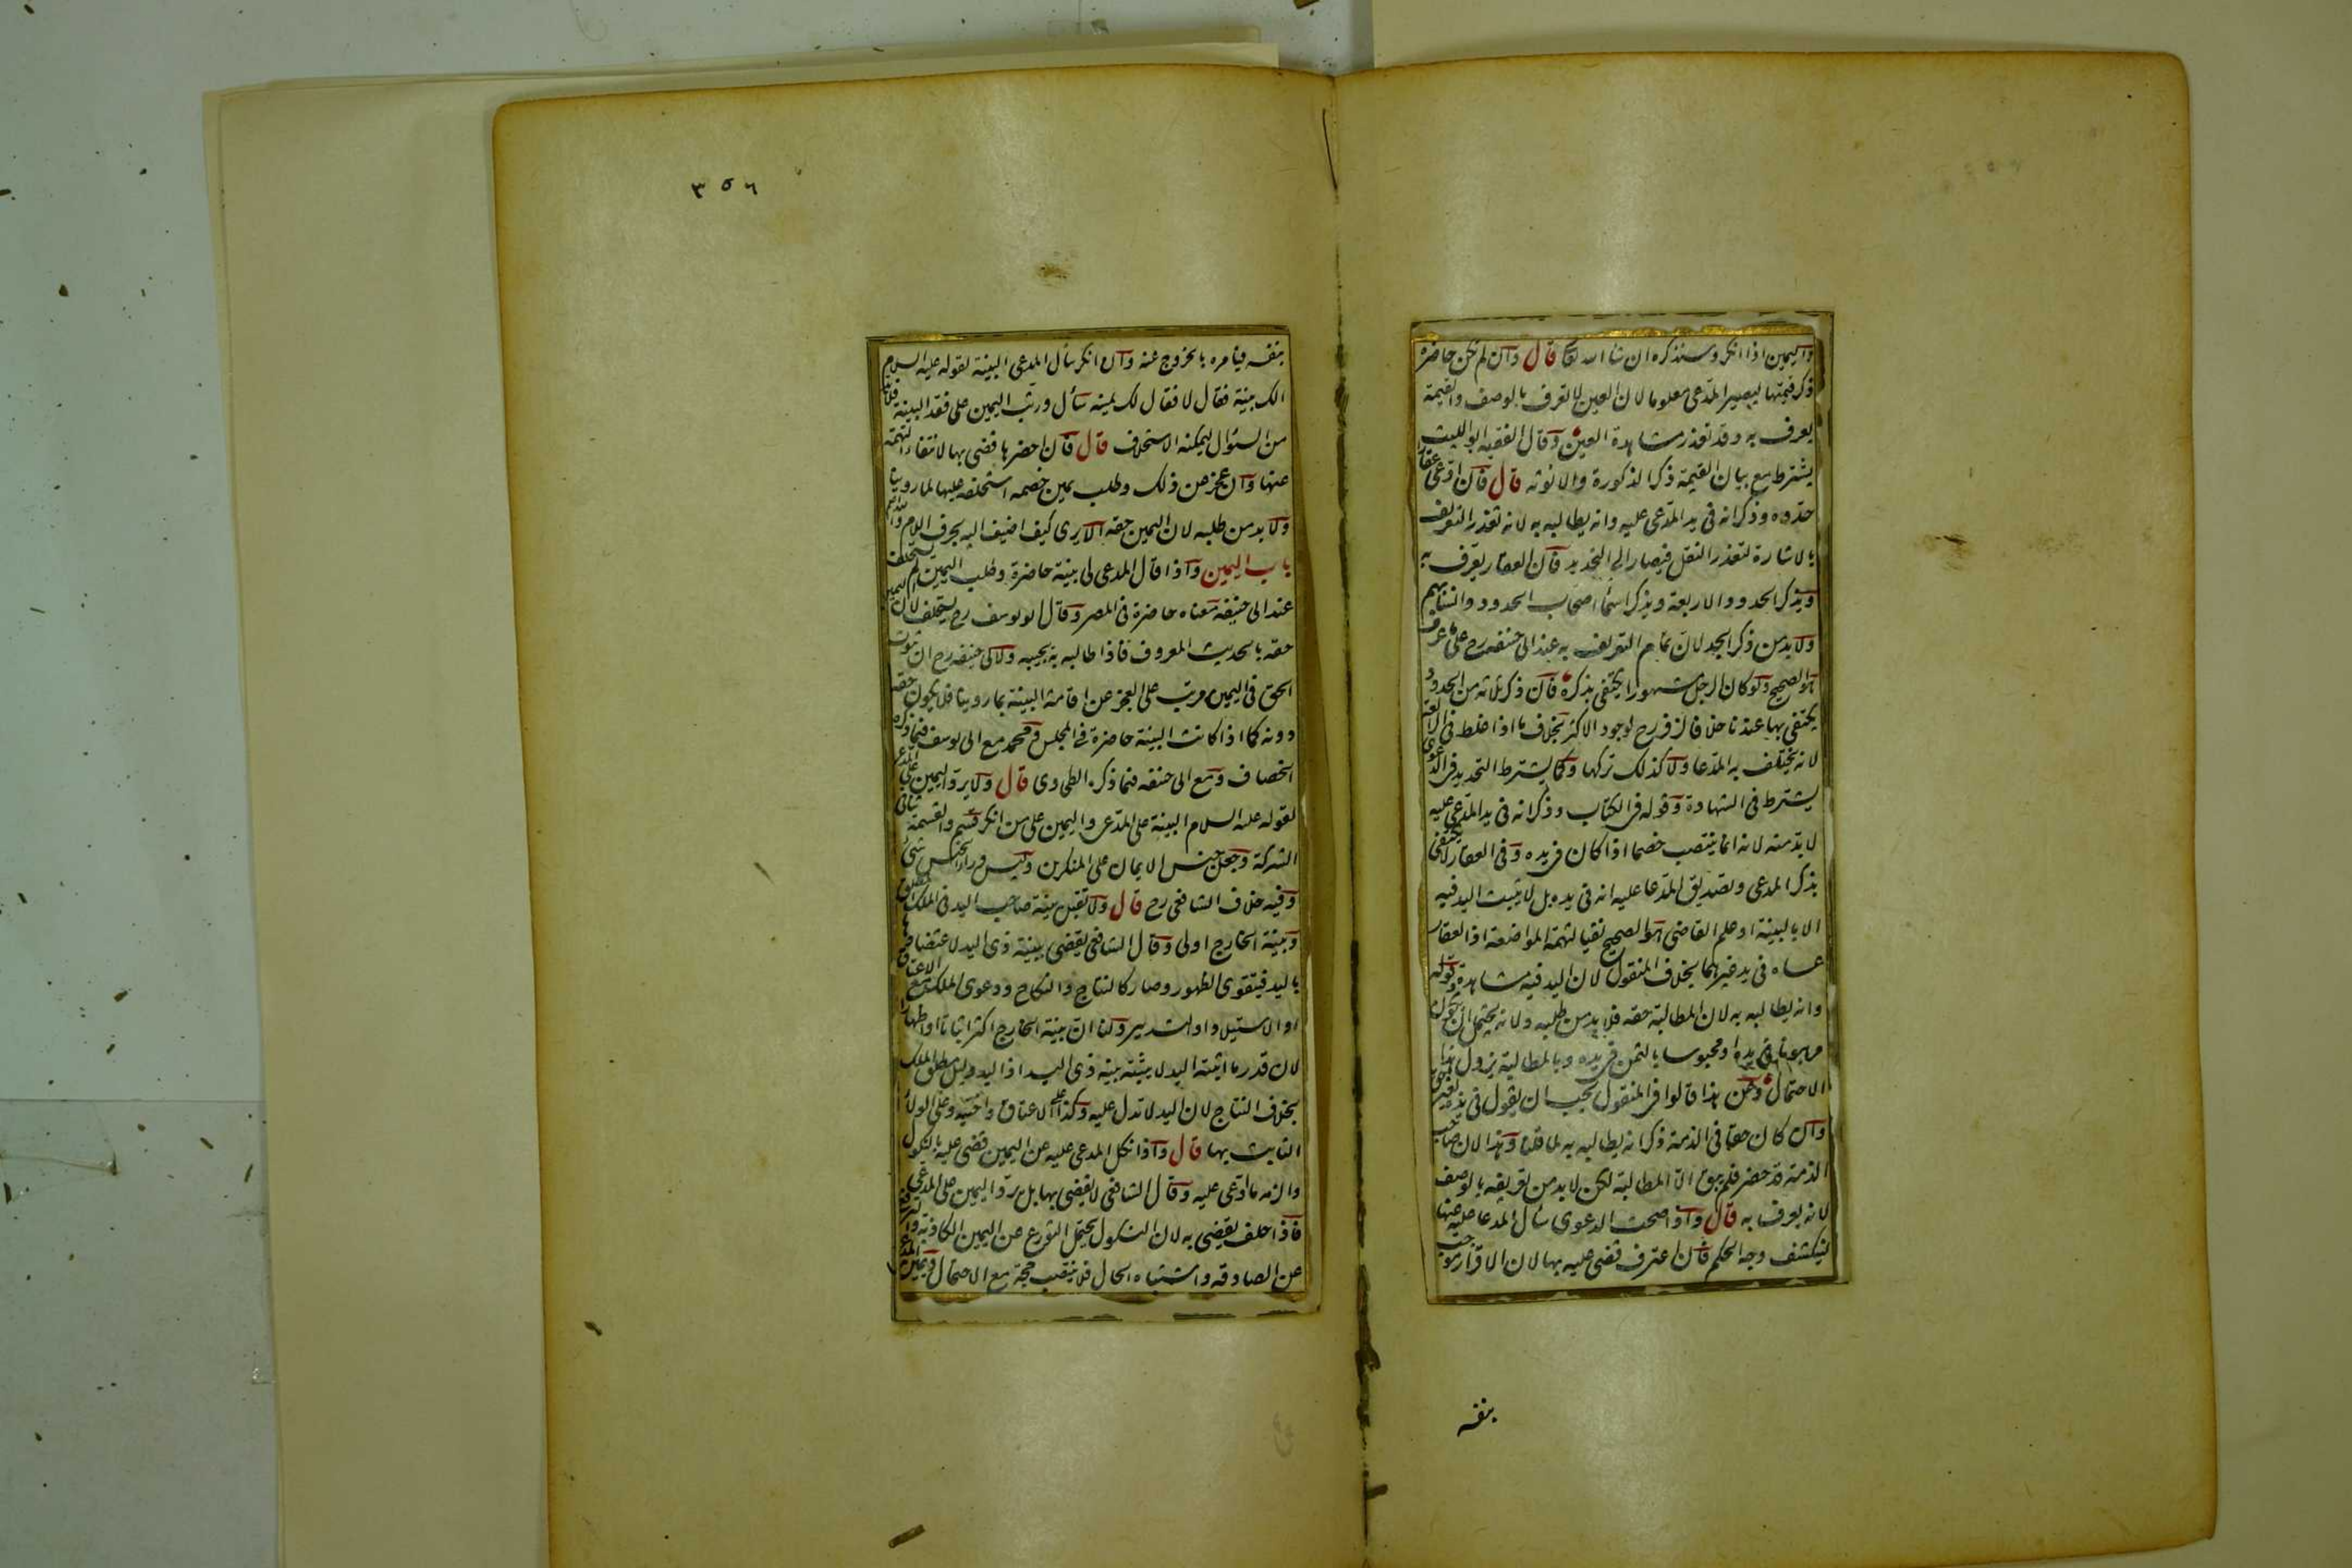 واليمين اذا انكر وسنذكره ان شا الله تعا قال وان لم تكن حاضرة
ذكر قيمتها ليصير المدعى معلوما لان العين لا تعرف بالوصف والقيمة
يعرف به وقد تعذر مشاهدة العين وقال الفقيه ابو الليث
يشترط مع بيان القيمة ذكر الذكورة والانوثه قال فان ادعى عقارا
حدده وذكر انه فى يد المدعى عليه وانه يطالبه به لانه تعذر التعريف
بالاشارة لتعذر النقل فيصار الى التحديد فان العقار يعرف به
ويذكر الحدود الاربعة ويذكر اسما اصحاب الحدود وانسابهم
ولا بد من ذكر الجد لان تمام التعريف به عند ابى حنيفه رح على ما عرف
هو الصحيح ولو كان الرجل مشهورا يكتفى بذكره فان ذكر ثلاثه من الحدود
يكتفى بها عندنا خلافا لزفر رح لوجود الاكثر بخلاف ما اذا غلط فى الرابعة
لانه يختلف به المدعا ولا كذلك تركها وكما يشترط التحديد فى الدعوى
يشترط فى الشهادة وقوله فى الكتاب وذكر انه فى يد المدعى عليه
لا بد منه لانه انما ينتصب خصما اذا كان فى يده وفى العقار لا يكتفى
بذكر المدعى وتصديق المدعا عليه انه فى يده بل لا يثبت اليد فيه
الا بالبينة او علم القاضى هو الصحيح نفيا لتهمة المواضعة اذ العقار
عساه فى يد غيرهما بخلاف المنقول لان اليد فيه مشاهدة وقوله
وانه يطالبه به لان المطالبة حقه فلا بد من طلبه ولانه يحتمل ان يكون
مرهونا فى يده او محبوسا بالثمن فى يده وبالمطالبة يزول هذا
الاحتمال وعن هذا قالوا فى المنقول يجب ان يقول فى يده بغير حق
وان كان حقا فى الذمة ذكر انه يطالبه به لما قلنا وهذا لان صاحب
الذمة قد حضر فلم يبق الا المطالبة لكن لا بد من تعريفه بالوصف
لانه يعرف به قال واذا صحت الدعوى سأل المدعا عليه عنها
لينكشف وجه الحكم فان اعترف قضى عليه بها لان الاقرار موجب
بنفسه
٣٥٦
بنفسه فيامره بالخروج عنه وان انكر سأل المدعى البينة لقوله عليه السلام
الك بينة فقال لا فقال لك يمينه سأل ورتب اليمين على فقد البينة فلا بد
من السؤال ليمكنه الاستحلاف قال فان احضرها قضى بها لانتفاء التهمة
عنها وان عجز عن ذلك وطلب يمين خصمه استحلفه عليها لما روينا
ولا بد من طلبه لان اليمين حقه الا يرى كيف اضيف اليه بحرف اللام والله اعلم
باب اليمين واذا قال المدعى لى بينة حاضرة وطلب اليمين لم يستحلف
عند ابى حنيفه معناه حاضرة فى المصر وقال ابو يوسف رح يستحلف لان اليمين
حقه بالحديث المعروف فاذا طالبه به يجيبه ولابى حنيفه رح ان ثبوت
الحق فى اليمين مرتب على العجز عن اقامة البينة بما روينا فلا يكون حقه
دونه كما اذا كانت البينة حاضرة فى المجلس ومحمد مع ابى يوسف فيما ذكره
الخصاف ومع ابى حنيفه فيما ذكره الطحاوى قال ولا يرد اليمين على المدعى
لقوله عليه السلام البينة على المدعى واليمين على من انكر قسم والقسمة تنافى
الشركة وجعل جنس الايمان على المنكرين وليس وراء الجنس شىء
وفيه خلاف الشافعى رح قال ولا تقبل بينة صاحب اليد فى الملك المطلق
وبينة الخارج اولى وقال الشافعى يقضى ببينة ذى اليد لاعتضادها
باليد فيتقوى الظهور وصار كالنتاج والنكاح ودعوى الملك مع الاعتاق
او الاستيلاد او التدبير ولنا ان بينة الخارج اكثر اثباتا او اظهارا
لان قدر ما اثبته اليد لا يثبته بينة ذى اليد اذ اليد دليل مطلق الملك
بخلاف النتاج لان اليد لا تدل عليه وكذا على الاعتاق واختيه وعلى الولاء
الثابت بها قال واذا نكل المدعى عليه عن اليمين قضى عليه بالنكول
والزمه ما ادعى عليه وقال الشافعى لا يقضى بها بل يرد اليمين على المدعى
فاذا حلف يقضى به لان النكول يحتمل التورع عن اليمين الكاذبة والترفع
عن الصادقة واشتباه الحال فلا ينتصب حجة مع الاحتمال ويمين المدعى